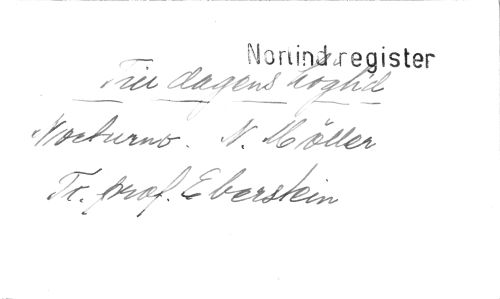 Norlind-register
Till dagens högtid
Nocturno. N. Möller
Tr. prof. Eberstein